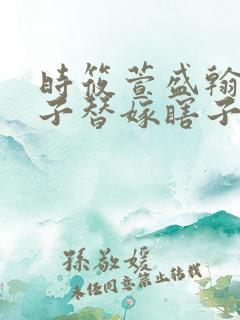 時筱萱盛翰
子替嫁瞎子
孫敬媛
未經同意禁止轉載